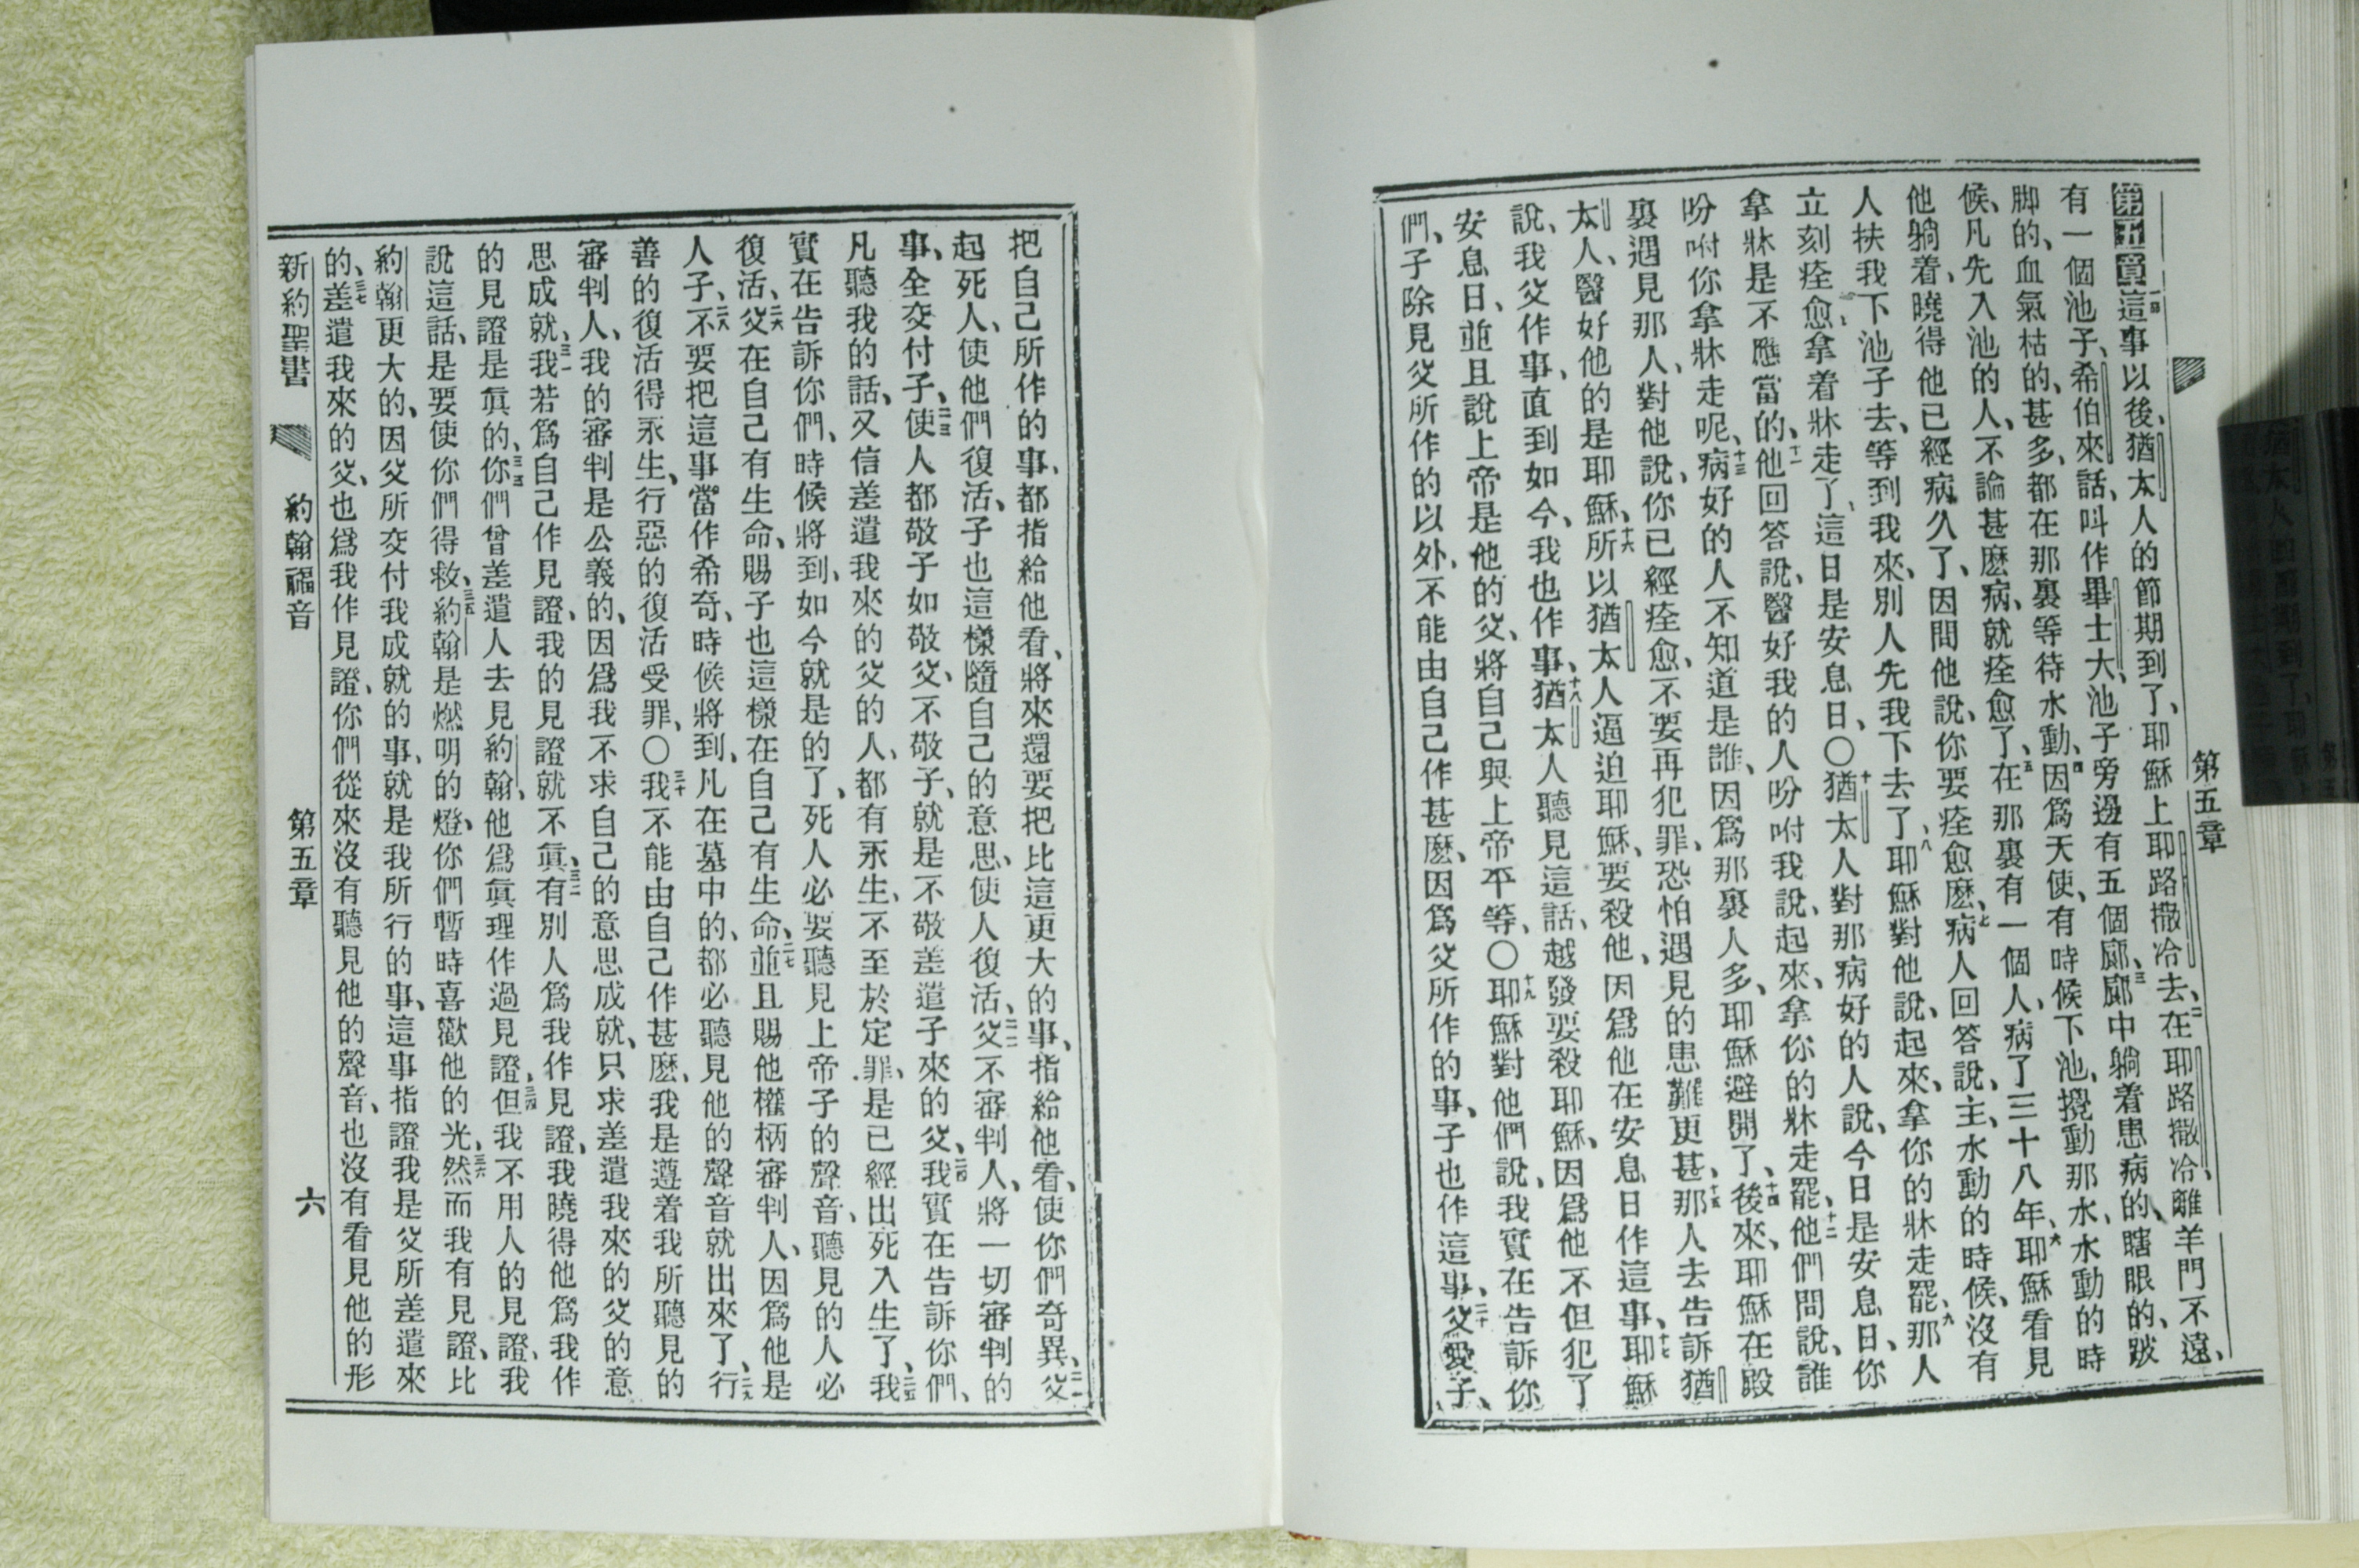 第五章
第五章一這事以後、猶太人的節期到了、耶穌上耶路撒冷去、二在耶路撒冷、離羊門不遠、
有一個池子、希伯來話、叫作畢士大、池子旁邊有五個廊、三廊中躺着患病的、瞎眼的、跛
脚的、血氣枯的、甚多、都在那裏等待水動、四因爲天使、有時候下池、攪動那水、水動的時
候、凡先入池的人、不論甚麽病、就痊愈了、五在那裏有一個人、病了三十八年、六耶穌看見
他躺着、曉得他已經病久了、因問他說、你要痊愈麽、七病人回答說、主、水動的時候、沒有
人扶我下池子去、等到我來、別人先我下去了、八耶穌對他說、起來、拿你的牀走罷、九那人
立刻痊愈、拿着牀走了、這日是安息日、〇十猶太人對那病好的人說、今日是安息日、你
拿牀是不應當的、十一他回答說、醫好我的人吩咐我說、起來、拿你的牀走罷、十二他們問說、誰
吩咐你拿牀走呢、十三病好的人不知道是誰、因爲那裏人多、耶穌避開了、十四後來、耶穌在殿
裏遇見那人、對他說、你已經痊愈、不要再犯罪、恐怕遇見的患難更甚、十五那人去告訴猶
太人、醫好他的是耶穌、十六所以猶太人逼迫耶穌、要殺他、因爲他在安息日作這事、十七耶穌
說、我父作事、直到如今、我也作事、十八猶太人聽見這話、越發要殺耶穌、因爲他不但犯了
安息日、並且說上帝是他的父、將自己與上帝平等、〇十九耶穌對他們說、我實在告訴你
們、子除見父所作的以外、不能由自己作甚麽、因爲父所作的事、子也作這事、二十父愛子、
把自己所作的事、都指給他看、將來還要把比這更大的事、指給他看、使你們奇異、二一父
起死人、使他們復活、子也這樣隨自己的意思、使人復活、二二父不審判人、將一切審判的
事、全交付子、二三使人都敬子如敬父、不敬子、就是不敬差遣子來的父、二四我實在告訴你們、
凡聽我的話、又信差遣我來的父的人、都有永生、不至於定罪、是已經出死入生了、二五我
實在告訴你們、時候將到、如今就是的了、死人必要聽見上帝子的聲音、聽見的人必
復活、二六父在自己有生命、賜子也這樣在自己有生命、二七並且賜他權柄審判人、因爲他是
人子、二八不要把這事當作希奇、時候將到、凡在墓中的、都必聽見他的聲音就出來了、二九行
善的復活得永生、行惡的復活受罪、〇三十我不能由自己作甚麽、我是遵着我所聽見的
審判人、我的審判是公義的、因爲我不求自己的意思成就、只求差遣我來的父的意
思成就、三一我若爲自己作見證、我的見證就不眞、三二有別人爲我作見證、我曉得他爲我作
的見證是眞的、三三你們曾差遣人去見約翰、他爲眞理作過見證、三四但我不用人的見證、我
說這話、是要使你們得救、三五約翰是燃明的燈、你們暫時喜歡他的光、三六然而我有見證、比
約翰更大的、因父所交付我成就的事、就是我所行的事、這事指證我是父所差遣來
的、三七差遣我來的父、也爲我作見證、你們從來沒有聽見他的聲音、也沒有看見他的形
新約聖書 約翰福音 第五章 六